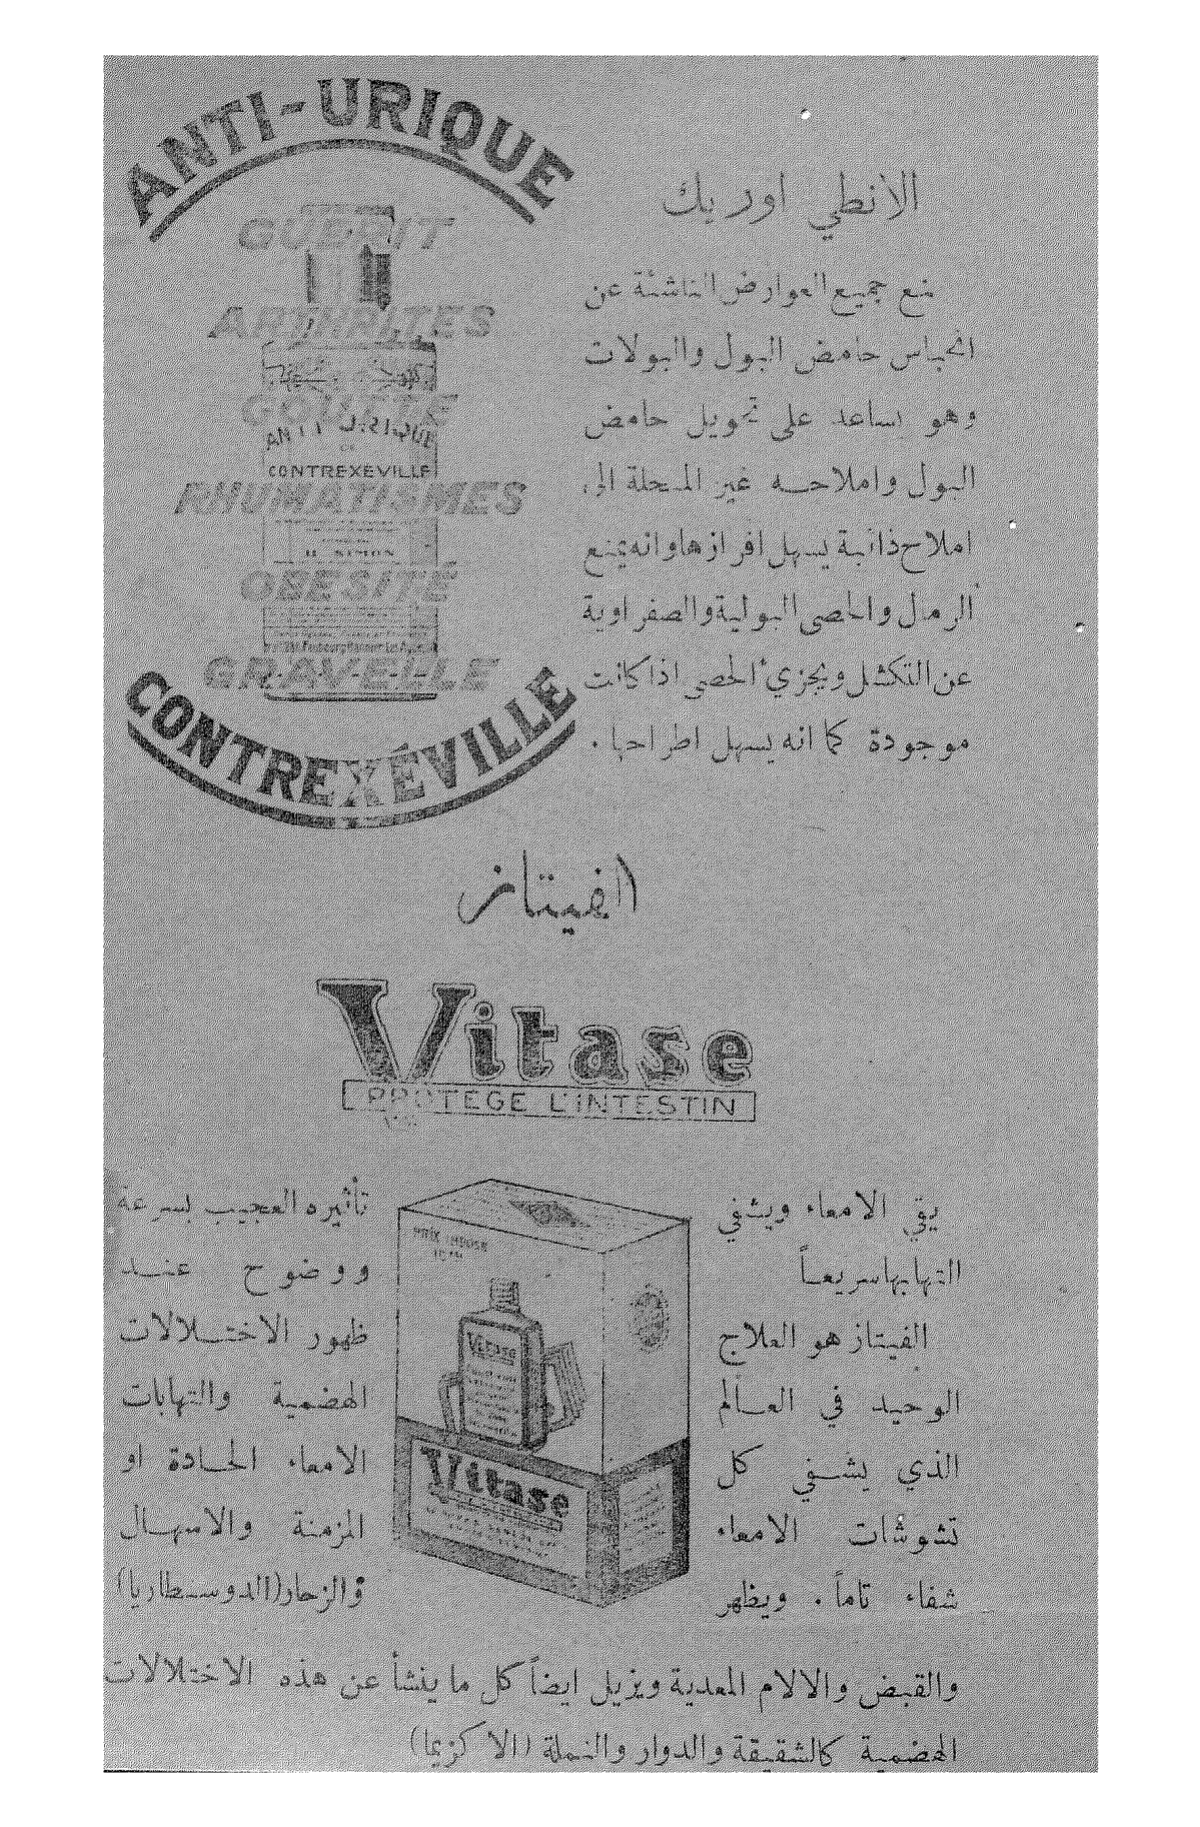 ANTI-URIQUE
GUÉRIT
ARTHRITES
GOUTTE
ANTI-URIQUE
CONTREXEVILLE
RHUMATISMES
H. SIMON
OBESITÉ
GRAVELLE
CONTREXÉVILLE
الانطي اوريك
يمنع جميع العوارض الناشئة عن
انحباس حامض البول والبولات
وهو يساعد على تحويل حامض
البول واملاحه غير المنحلة الى
املاح ذائبة يسهل افرازها وانه يمنع
الرمال والحصى البولية والصفراوية
عن التكتل ويجزيء الحصى اذا كانت
موجودة كما انه يسهل اطراحها .
الفيتاز
Vitase
PROTEGE L'INTESTIN
يقي الامعاء ويشفي
التهابها سريعاً
الفيتاز هو العلاج
الوحيد في العالم
الذي يشفي كل
تشوشات الامعاء
شفاء تاماً . ويظهر
PRIX IMPOSE
Vitase
Vitase
تأثيره العجيب بسرعة
ووضوح عند
ظهور الاختلالات
الهضمية والتهابات
الامعاء الحادة او
المزمنة والاسهال
والزحار (الدوسنطاريا)
والقبض والالام المعدية ويزيل ايضاً كل ما ينشأ عن هذه الاختلالات
الهضمية كالشقيقة والدوار والنملة (الاكزيما)